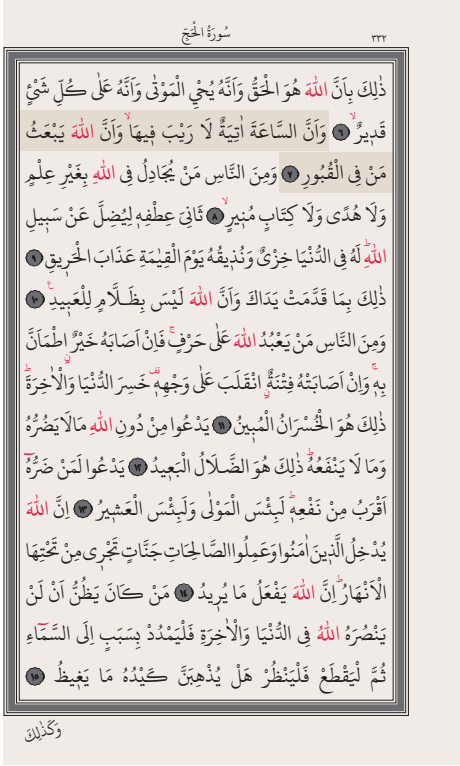 سُورَةُ الْحَجِّ
٣٣٢
ذٰلِكَ بِاَنَّ اللّٰهَ هُوَ الْحَقُّ وَاَنَّهُ يُحْيِ الْمَوْتٰى وَاَنَّهُ عَلٰى كُلِّ شَيْءٍ
قَد۪يرٌۙ ﴿٦﴾ وَاَنَّ السَّاعَةَ اٰتِيَةٌ لَا رَيْبَ ف۪يهَاۙ وَاَنَّ اللّٰهَ يَبْعَثُ
مَنْ فِى الْقُبُورِ ﴿٧﴾ وَمِنَ النَّاسِ مَنْ يُجَادِلُ فِى اللّٰهِ بِغَيْرِ عِلْمٍ
وَلَا هُدًى وَلَا كِتَابٍ مُن۪يرٍۙ ﴿٨﴾ ثَانِىَ عِطْفِه۪ لِيُضِلَّ عَنْ سَب۪يلِ
اللّٰهِۜ لَهُ فِى الدُّنْيَا خِزْىٌ وَنُذ۪يقُهُ يَوْمَ الْقِيٰمَةِ عَذَابَ الْحَر۪يقِ ﴿٩﴾
ذٰلِكَ بِمَا قَدَّمَتْ يَدَاكَ وَاَنَّ اللّٰهَ لَيْسَ بِظَلَّامٍ لِلْعَب۪يدِ۟ ﴿١٠﴾
وَمِنَ النَّاسِ مَنْ يَعْبُدُ اللّٰهَ عَلٰى حَرْفٍۚ فَاِنْ اَصَابَهُ خَيْرٌۨ اطْمَاَنَّ
بِه۪ۚ وَاِنْ اَصَابَتْهُ فِتْنَةٌۨ انْقَلَبَ عَلٰى وَجْهِه۪ۗ خَسِرَ الدُّنْيَا وَالْاٰخِرَةَۜ
ذٰلِكَ هُوَ الْخُسْرَانُ الْمُب۪ينُ ﴿١١﴾ يَدْعُوا مِنْ دُونِ اللّٰهِ مَالَا يَضُرُّهُ
وَمَا لَا يَنْفَعُهُۜ ذٰلِكَ هُوَ الضَّلَالُ الْبَع۪يدُ ﴿١٢﴾ يَدْعُوا لَمَنْ ضَرُّهُٓ
اَقْرَبُ مِنْ نَفْعِه۪ۜ لَبِئْسَ الْمَوْلٰى وَلَبِئْسَ الْعَش۪يرُ ﴿١٣﴾ اِنَّ اللّٰهَ
يُدْخِلُ الَّذ۪ينَ اٰمَنُوا وَعَمِلُوا الصَّالِحَاتِ جَنَّاتٍ تَجْر۪ى مِنْ تَحْتِهَا
الْاَنْهَارُۜ اِنَّ اللّٰهَ يَفْعَلُ مَا يُر۪يدُ ﴿١٤﴾ مَنْ كَانَ يَظُنُّ اَنْ لَنْ
يَنْصُرَهُ اللّٰهُ فِى الدُّنْيَا وَالْاٰخِرَةِ فَلْيَمْدُدْ بِسَبَبٍ اِلَى السَّمَٓاءِ
ثُمَّ لْيَقْطَعْ فَلْيَنْظُرْ هَلْ يُذْهِبَنَّ كَيْدُهُ مَا يَغ۪يظُ ﴿١٥﴾
وَكَذٰلِكَ